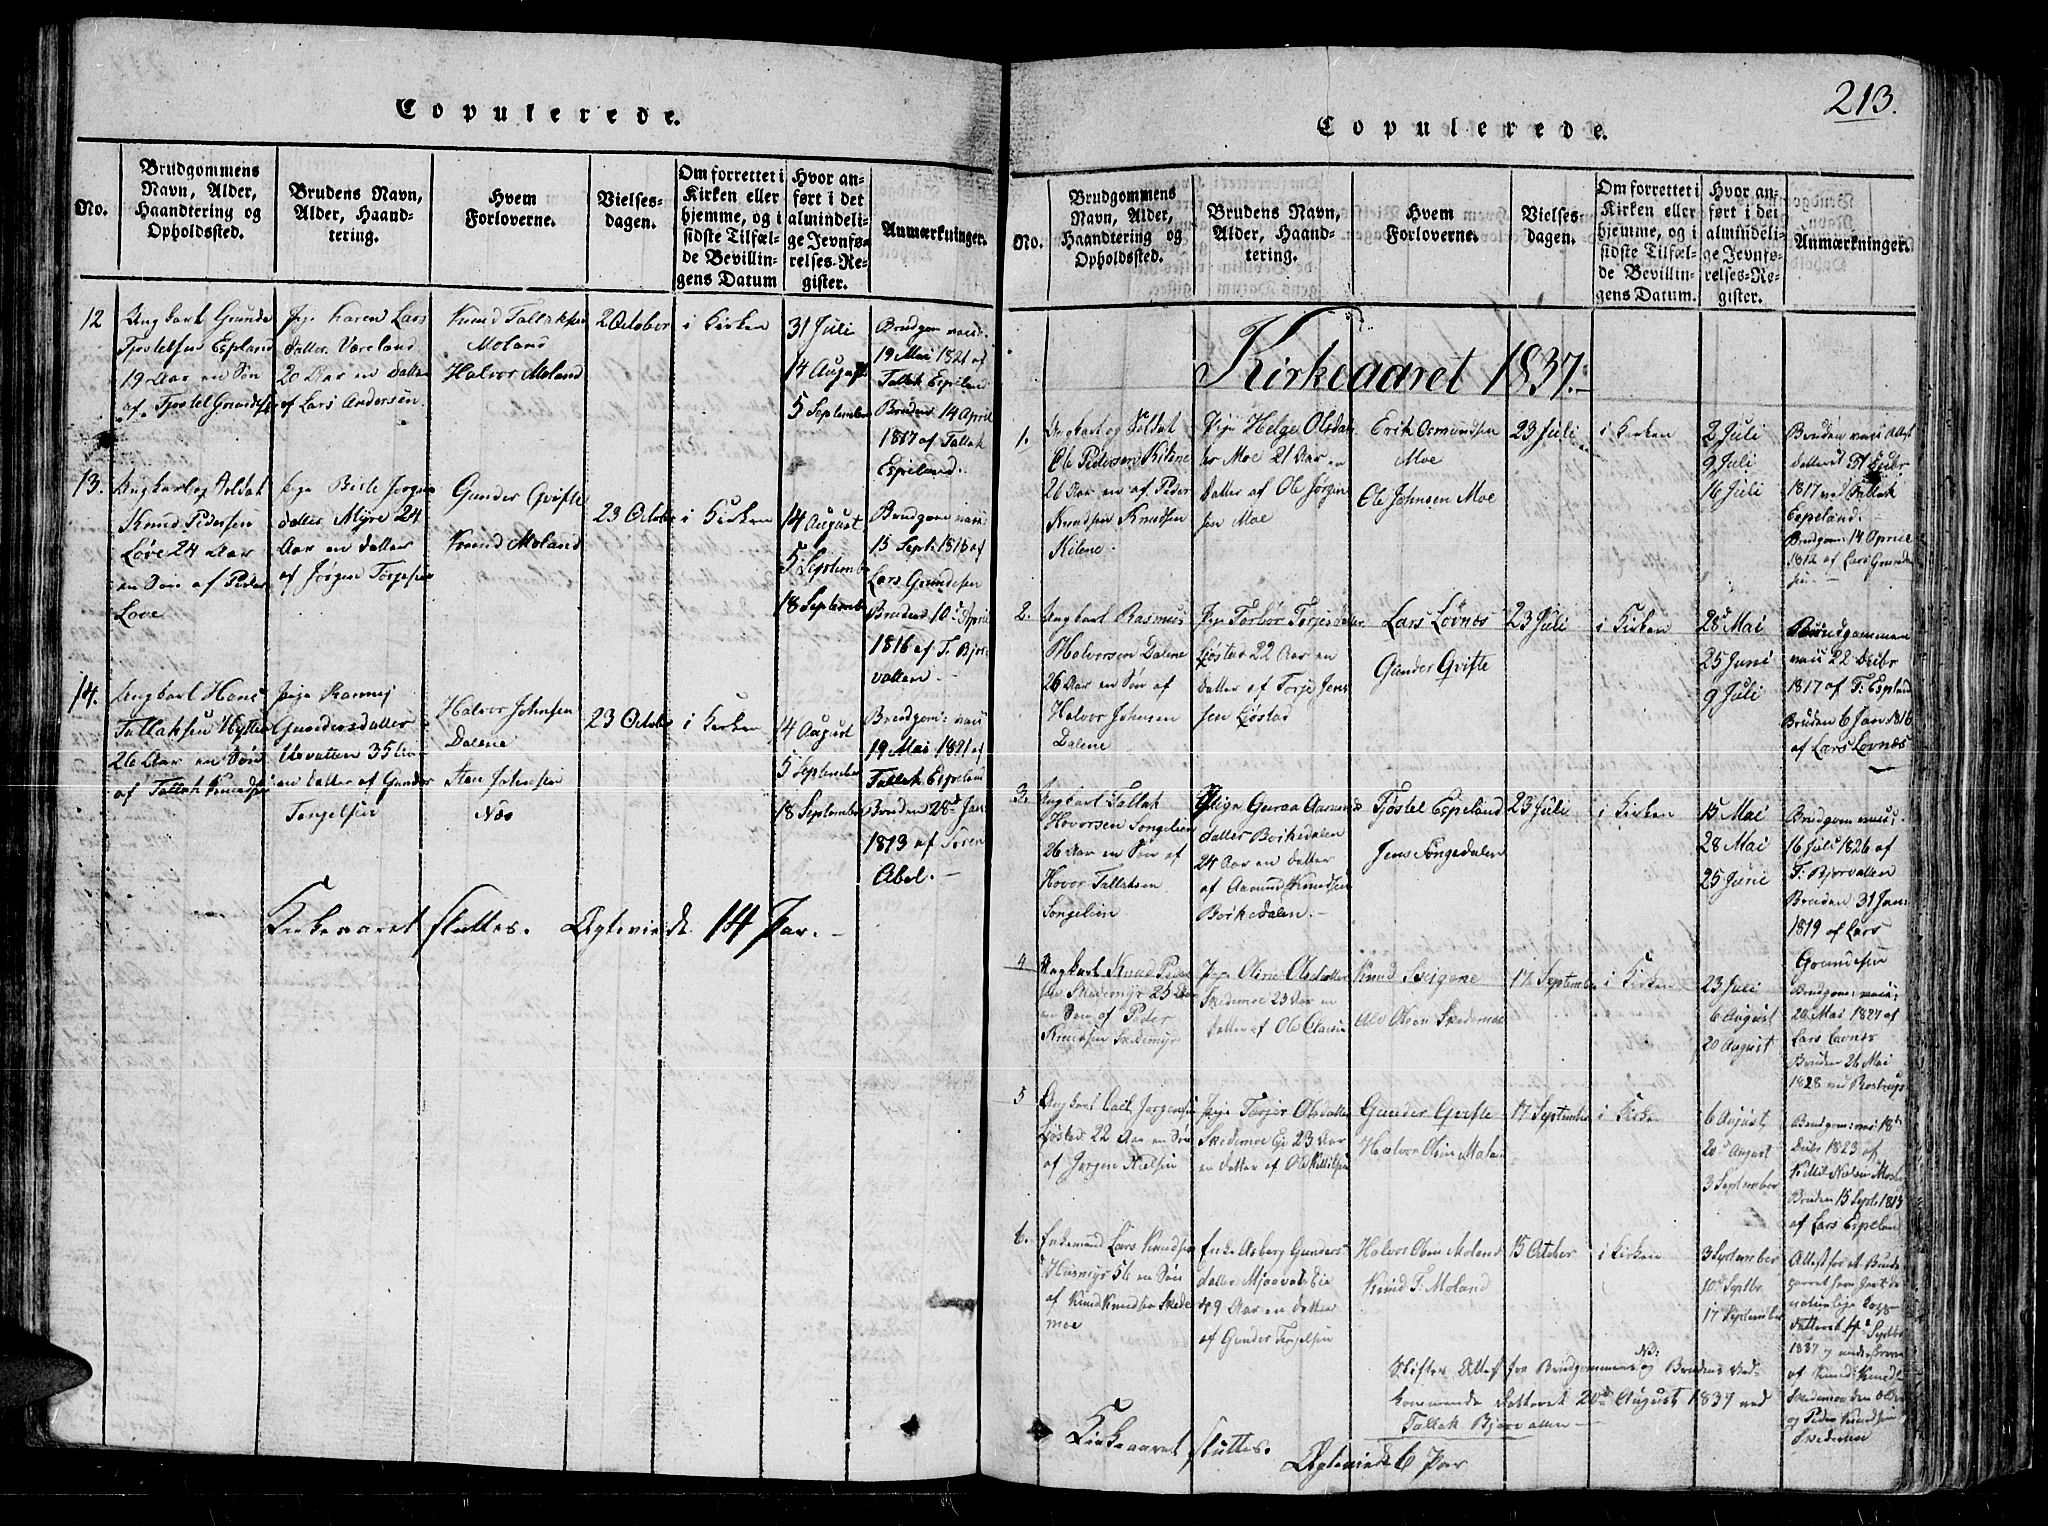 Copulerede.
No.
Brudgommens
Navn, Alder,
Haandtering og
Opholdssted.
Brudens Navn,
Alder, Haand-
tering.
Hvem
Forloverne.
Vielses-
dagen.
Om forrettet i
Kirken eller
hjemme, og i
sidste Tilfæl-
de Bevillin-
gens Datum
Hvor an-
ført i det
almindeli-
ge Jevnfø-
relses-Re-
gister.
Anmærkninger.
12
Ungkarl Grunde
Tjostelsen Espland
19 Aar en Søn
af Tjostel Grundesen
Pige Karen Lars
datter Væreland
20 Aar en datter
af Lars Andersen.
Knud Tallaksen
Moland
Halvor Moland
2 October
i Kirken
31 Juli
14 August
5 September
Brudgom vacc:
19 Mai 1821 af
Tallak Espeland
Bruden 14 April
1817 af Tallak
Espeland.
13.
Ungkarl og Soldat
Knud Pedersen
Løve 24 Aar
en Søn af Peder
Love
Pige Birte Jørgens
datter Myre 24
Aar en datter
af Jørgen Torgesen
Gunder Qvifte
Knud Moland
23 October
i Kirken
14 August
5 September
18 September
Brudgom vacc:
15 Sept: 1815 af
Lars Grundesen
Bruden 10 April
1816 af T. Bjor
vatten
14.
Ungkarl Hans
Tallaksen Hytten
26 Aar en Søn
af Tallak Knudsen
Pige
Gundersdatter
Uevatten 35 Aar
en datter af Gunder
Tengelsen
Halvor Johnsen
Dalene
Johnsen
Næs
23 October
i Kirken
14 August
5 September
18 September
Brudgom: vacc
19 Mai 1821 af
Tallak Espeland
Bruden 28 Jan
1813 af Søren
Abel.
Kirkeaaret sluttes. Ægteviede 14 Par.
213.
Copulerede.
No.
Brudgommens
Navn, Alder,
Haandtering og
Opholdssted.
Brudens Navn,
Alder, Haand-
tering.
Hvem
Forloverne.
Vielses
dagen.
Om forrettet i
Kirken eller
hjemme, og i
sidste Tilfæl-
de Bevillin-
gens Datum.
Hvor an-
ført i det
almindeli-
ge Jevnfø-
relses-Re-
gister.
Anmærkninger.
Kirkeaaret 1837.
1.
Ungkarl og Soldat
Ole Pedersen Kilene
26 Aar en af Peder
Knudsen Knudsen
Kilene
Pige Helge Olsdat
ter Moe 21 Aar en
datter af Ole Jørgen
sen Moe
Erik Osmundsen
Moe
Ole Johnsen Moe
23 Juli
i Kirken
2 Juli
9 Juli
16 Juli
Bruden vacc Attest
dateret 31 Decbr
1817 ved Tallak
Espeland.
Brudgom: 14 April
1812 af Lars Grunde
sen
2.
Ungkarl Rasmus
Halvorsen Dalene
26 Aar en Søn af
Halvor Johnsen
Dalene
Pige Torbør Torjesdatter
Løstad 22 Aar en
datter af Torje Jens
sen Løstad
Lars Løvnes
Gunder Qvifte
23 Juli
i Kirken
28 Mai
25 Juni
9 Juli
Brudgommen
vacc 22 Decbr
1817 af T: Espland
Bruden 6 Jan 1816
af Lars Lovnæs
3.
Ungkarl Tallak
Hovorsen Songelien
26 Aar en Søn af
Hovor Tallaksen
Songelien
Pige Guroa Aamunds
datter Borkedalen
24 Aar en datter
af Aamund Knudsen
Borkedalen.
Tjøstel Espeland
Jens Songedalen
23 Juli
i Kirken
15 Mai
28 Mai
25 Juni
Brudgom vacc:
16 Juli 1826 af
T. Bjorvatten
Bruden 31 Jan
1819 af Lars
Grundesen
4
Ungkarl Knud Peder
sen Skedemyr 25 Aar
en Søn af Peder
Knudsen Skedemyr
Pige Oline Olsdatter
Skedemoe 23 Aar en
datter af Ole Olavsen
Knud Sveigene
Olsen Skedemoe
17 September
i Kirken
23 Juli
6 August
20 August
Brudgom: vacc:
20 Mai 1827 af
Lars Lavnæs
Bruden 26 Mai
1828 ved Rostrup
5
Ungkarl Jørgensen
Løstad 22 Aar en Søn
af Jørgen Nielsen
Pige Torjer Olsdatter
Skedemoe Eje 23 Aar
en datter af Ole Kittilsen
Gunder Qvifte
Halvor Olsen Moland
17 September
i Kirken
6 August
20 August
3 September
Brudgom: vac 18
Decbr 1823 af
Kittil Nælen
Bruden 15 Septr 1815
af Lars Espeland
6.
Enkemand Lars Knudsen
Husmyr 56 en Søn
af Knud Knudsen Skede
moe
Enke Asberg Gunders
datter Mjaavads Eie
49 Aar en datter
af Gunder Tengelsen
Halvor Olsen Moland
Knud T. Moland
15 October
i Kirken
3 September
10 Septbr
17 September
Attest for at Brude
parret have havt de
naturlige Kopper
dateret 4 Septbr
1837 og underskreven
af Knud Knudsen
Skedemoe den Ældre
og Peder Knudsen
Skedemoe
NB:
Skifter Attest for Brudgommens og Brudens Ved-
kommende dateret 20 August 1837 ved
Tallak Bjorvatten
Kirkeaaret sluttes. Ægteviede 6 Par